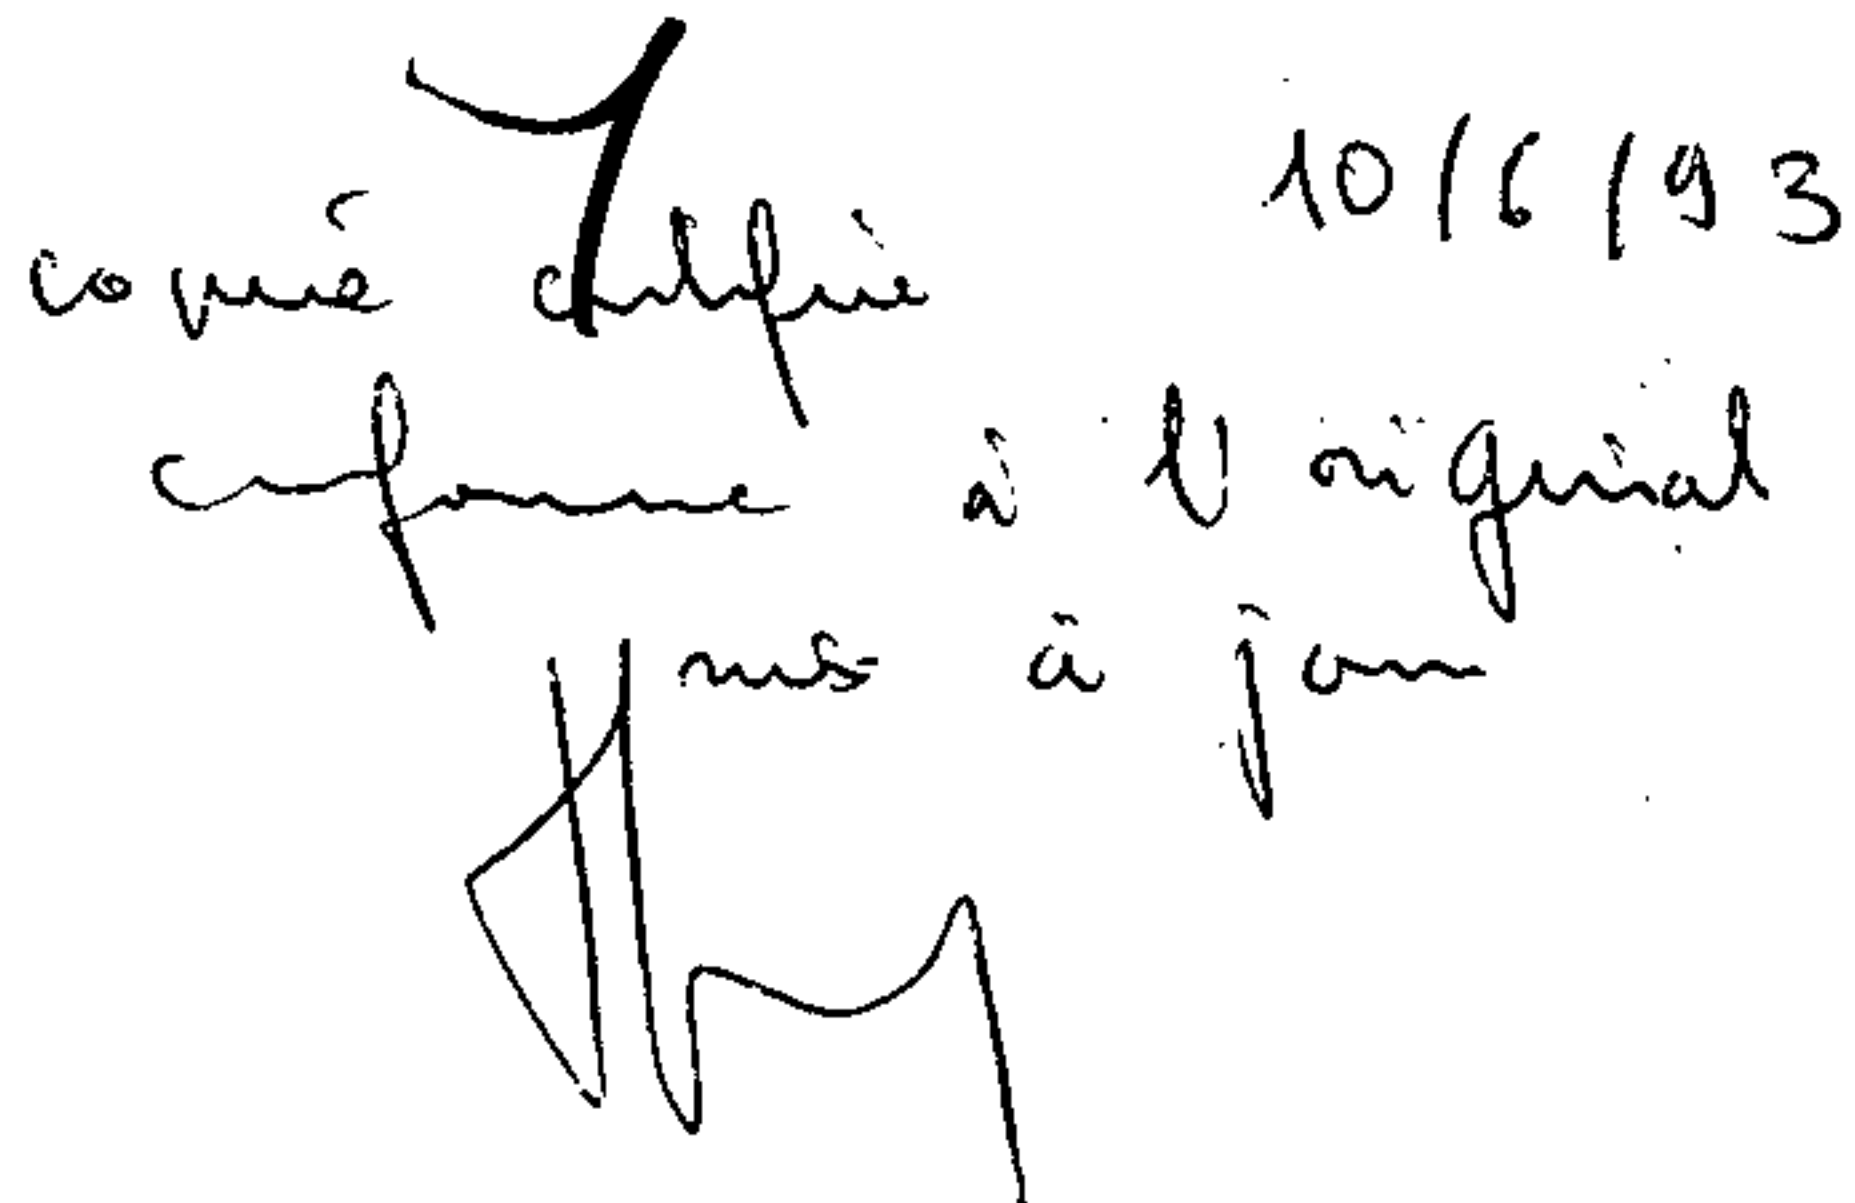 10/6/93
copie certifiée
conforme à l'original
mis à jour